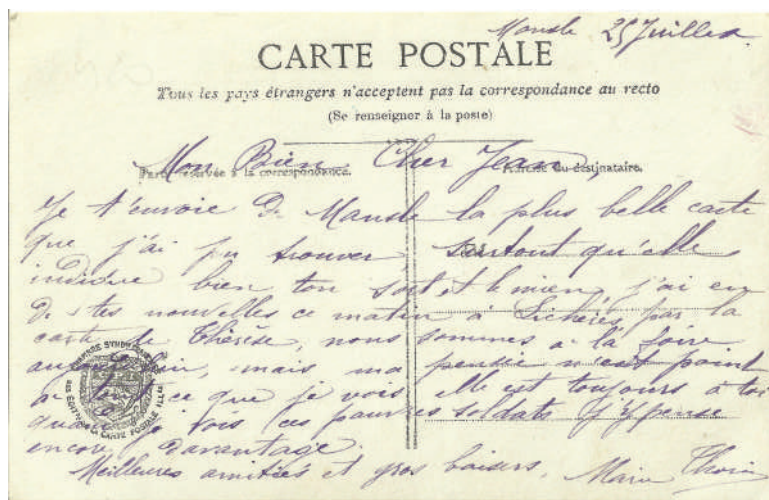 Mansle 25 Juillet
CARTE POSTALE
Tous les pays étrangers n'acceptent pas la correspondance au recto
(Se renseigner à la poste)
Mon Bien Cher Jean,
Partie réservée à la correspondance.
Adresse du destinataire.
Je t'envoie de Mansle la plus belle carte
que j'ai pu trouver, surtout qu'elle
indique bien ton sort et le mien, j'ai eu
de tes nouvelles ce matin à Lichères par la
carte de Thérèse, nous sommes à la foire
aujourd'hui, mais ma pensée n'est point
à tout ce que je vois elle est toujours à toi
quand je vois ces pauvres soldats j'y pense
encore davantage.
Meilleures amitiés et gros baisers. Marie
CHAMBRE SYNDICALE
DES ÉDITEURS DE LA CARTE POSTALE ILLÉE